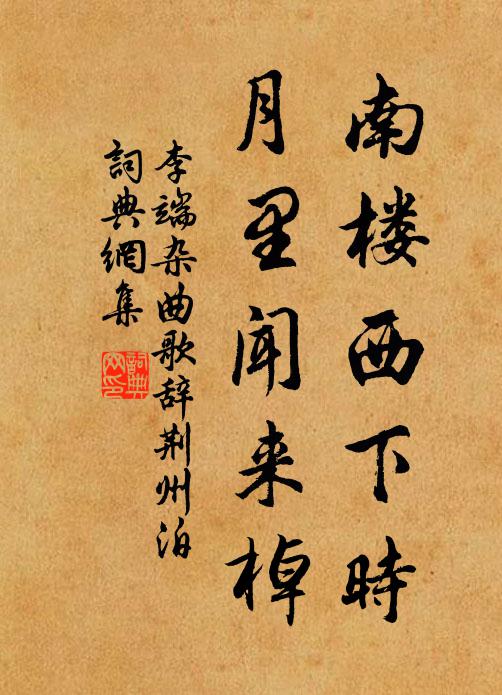 南楼西下時
月里闻来棹
李端杂曲歌辞荆州泊
詞典網集
詞典
网印